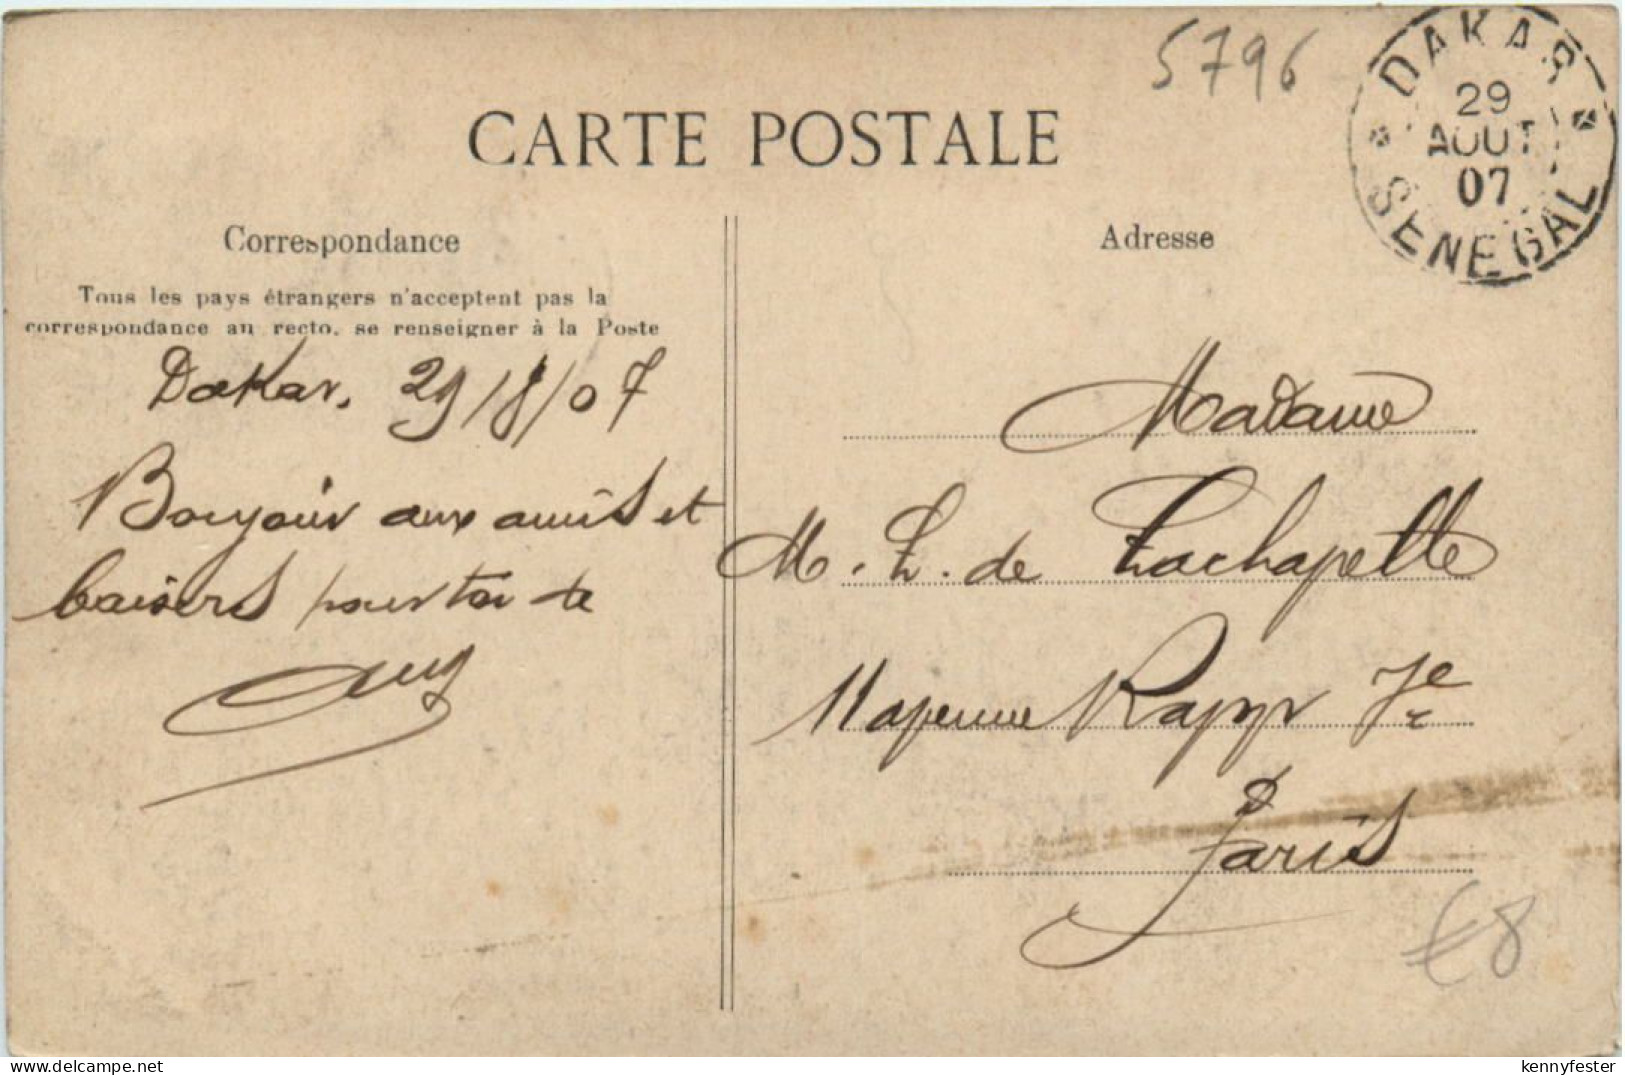 5796
DAKAR
29
AOUT
07
SENEGAL
CARTE POSTALE
Correspondance
Adresse
Tous les pays étrangers n'acceptent pas la
correspondance au recto, se renseigner à la Poste
Dakar, 29/8/07
Bonjour aux amis et
baisers pour toi de
Madame
M. L. de Lachapelle
11 avenue Rapp 7e
Paris
€8
www.delcampe.net
kennyfester